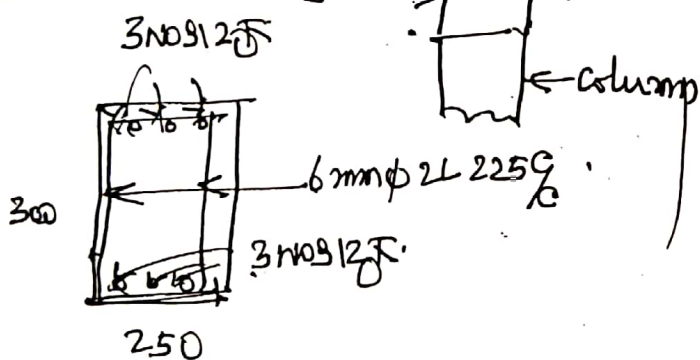 3NOS12Ꞙ
column
6mmφ 2L 225C/C
300
3NOS12Ꞙ.
250